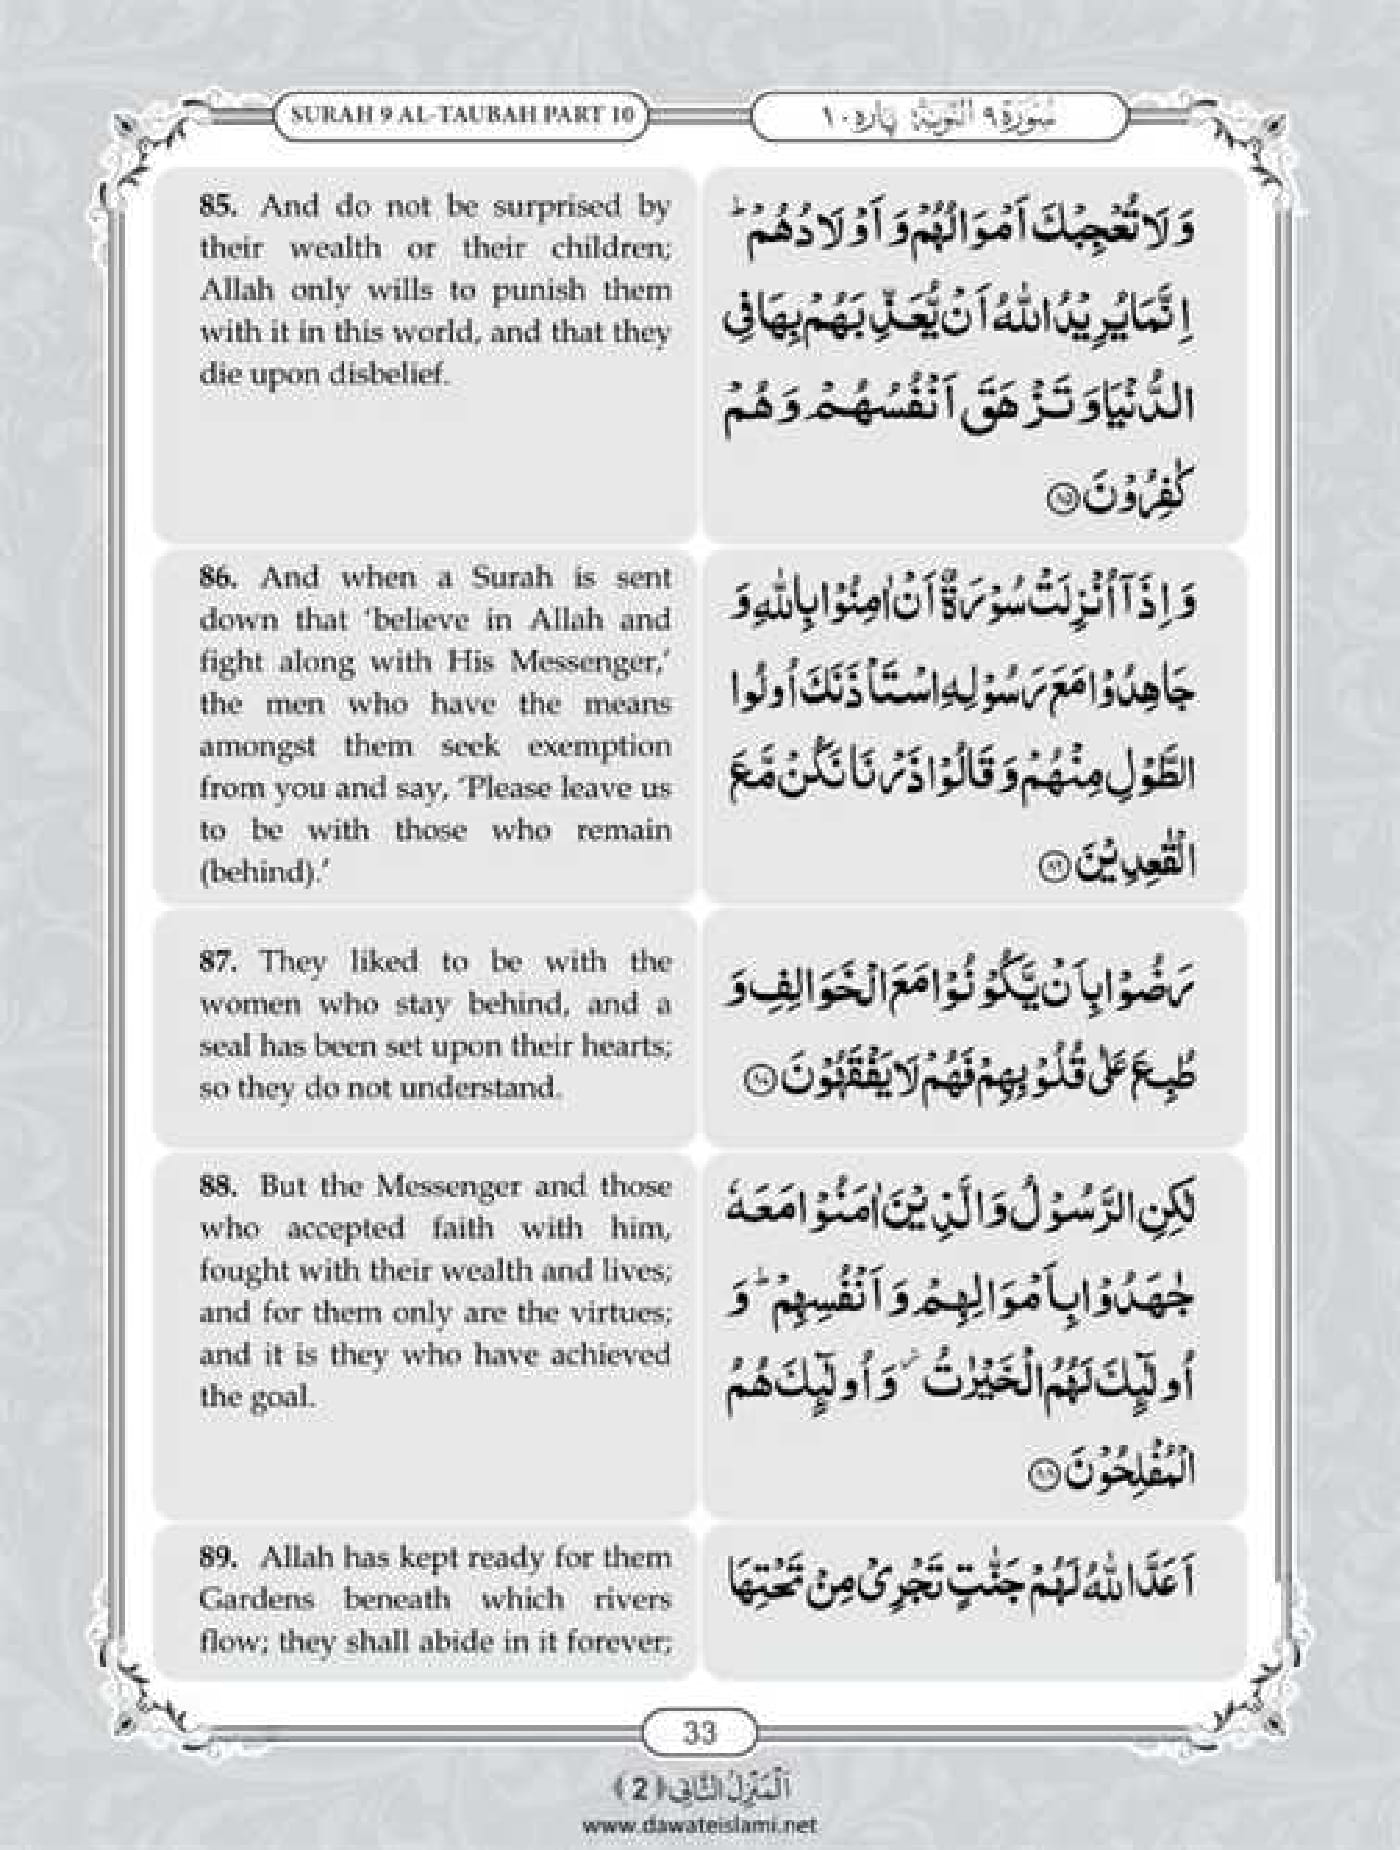 SURAH 9 AL-TAUBAH PART 10
سُوْرَةُ ٩ التَّوْبَةُ پاره ١٠
85. And do not be surprised by
their wealth or their children;
Allah only wills to punish them
with it in this world, and that they
die upon disbelief.
وَ لَا تُعْجِبْكَ اَمْوَالُهُمْ وَ اَوْلَادُهُمْ ؕ
اِنَّمَا یُرِیْدُ اللّٰهُ اَنْ یُّعَذِّبَهُمْ بِهَا فِی
الدُّنْیَا وَ تَزْهَقَ اَنْفُسُهُمْ وَ هُمْ
كٰفِرُوْنَ ﴿۸۵﴾
86. And when a Surah is sent
down that ‘believe in Allah and
fight along with His Messenger,’
the men who have the means
amongst them seek exemption
from you and say, ‘Please leave us
to be with those who remain
(behind).’
وَ اِذَاۤ اُنْزِلَتْ سُوْرَةٌ اَنْ اٰمِنُوْا بِاللّٰهِ وَ
جَاهِدُوْا مَعَ رَسُوْلِهِ اسْتَاْذَنَكَ اُولُوا
الطَّوْلِ مِنْهُمْ وَ قَالُوْا ذَرْنَا نَكُنْ مَّعَ
الْقٰعِدِیْنَ ﴿۸۶﴾
87. They liked to be with the
women who stay behind, and a
seal has been set upon their hearts;
so they do not understand.
رَضُوْا بِاَنْ یَّكُوْنُوْا مَعَ الْخَوَالِفِ وَ
طُبِعَ عَلٰى قُلُوْبِهِمْ فَهُمْ لَا یَفْقَهُوْنَ ﴿۸۷﴾
88. But the Messenger and those
who accepted faith with him,
fought with their wealth and lives;
and for them only are the virtues;
and it is they who have achieved
the goal.
لٰكِنِ الرَّسُوْلُ وَ الَّذِیْنَ اٰمَنُوْا مَعَهٗ
جٰهَدُوْا بِاَمْوَالِهِمْ وَ اَنْفُسِهِمْ ؕ وَ
اُولٰٓىٕكَ لَهُمُ الْخَیْرٰتُ ؗ وَ اُولٰٓىٕكَ هُمُ
الْمُفْلِحُوْنَ ﴿۸۸﴾
89. Allah has kept ready for them
Gardens beneath which rivers
flow; they shall abide in it forever;
اَعَدَّ اللّٰهُ لَهُمْ جَنّٰتٍ تَجْرِیْ مِنْ تَحْتِهَا
33
اَلْمَنْزِلُ الثَّانِی ﴿2﴾
www.dawateislami.net